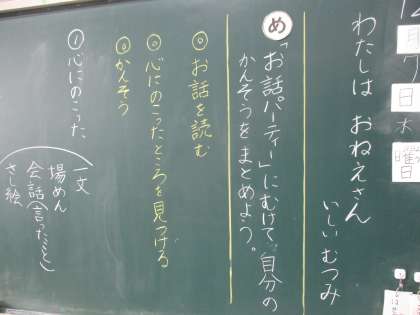 わたしは おねえさん
いしい むつみ
め
「お話パーティー」にむけて、自分の
かんそうをまとめよう。
◎お話を読む
◎心にのこったところを見つける
◎かんそう
①心にのこった
一文
場めん
会話(言ったこと)
さし絵
12
月
7
日
木
曜